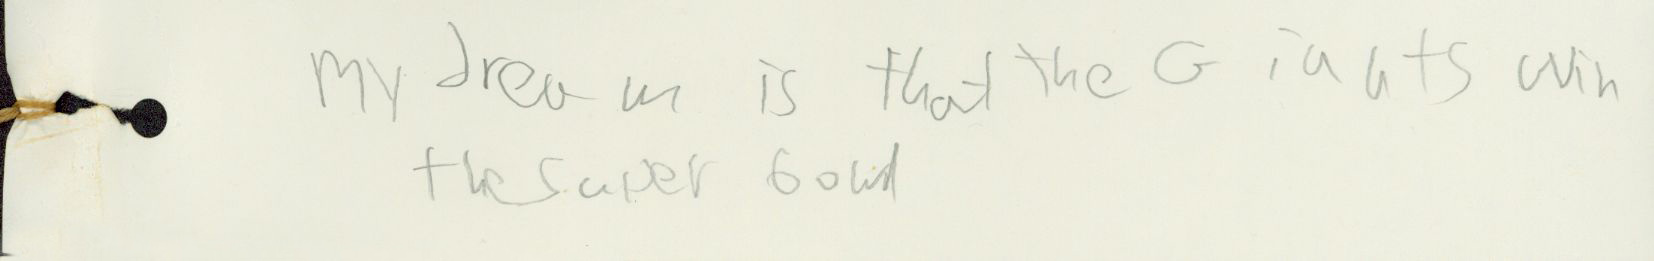 My dream is that the Giants win
the super bowl